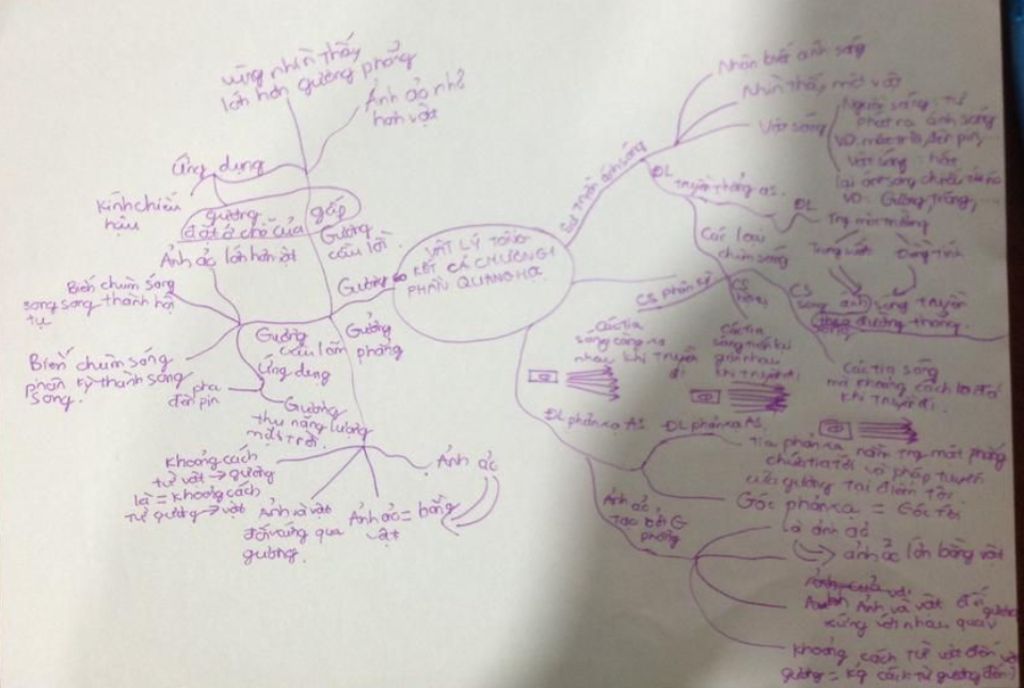 vùng nhìn thấy
lớn hơn gương phẳng
Ảnh ảo nhỏ
hơn vật
Ứng dụng
Kính chiếu
hậu
gương
đặt ở chỗ cua gấp
Gương
cầu lồi
Ảnh ảo lớn hơn vật
Biến chùm sáng
song song thành hội
tụ
Gương
cầu lõm
Biến chùm sáng
phân kỳ thành song
song.
Ứng dụng
pha
đèn pin
Gương
thu năng lượng
mặt trời.
Gương
Gương
phẳng
Khoảng cách
từ vật → gương
là = khoảng cách
từ gương → vật
Ảnh và vật
đối xứng qua
gương.
Ảnh ảo = bằng
vật
Ảnh ảo
VẬT LÝ TỔNG
KẾT CẢ CHƯƠNG 1
PHẦN QUANG HỌC
ánh sáng
Nhận biết ánh sáng
Nhìn thấy một vật
Vật sáng
Nguồn sáng: tự
phát ra ánh sáng
VD: mặt trời, đèn pin,
Vật sáng: hắt
lại ánh sáng chiếu vào nó
VD: Gương, trăng,
ĐL
truyền thẳng as.
ĐL
Trg môi trường
Trong suốt
Đồng tính
sáng truyền
theo đường thẳng.
Các loại
chùm sáng
CS phân kỳ
CS
hội tụ
CS
song
Các tia
sáng càng xa
nhau khi truyền
đi
Các tia
sáng tiến lại
gần nhau
khi truyền đi
Các tia sáng
mà khoảng cách
khi truyền đi.
ĐL phản xạ AS
ĐL phản xạ AS.
Tia phản xạ nằm trg mặt phẳng
chứa tia tới và pháp tuyến
của gương tại điểm tới.
Góc phản xạ = Góc tới
Ảnh ảo
tạo bởi G
phẳng
Là ảnh ảo
ảnh ảo lớn bằng vật
Ảnh và vật đối
xứng với nhau qua
gương
Khoảng cách từ vật đến
gương = kg cách từ gương đến